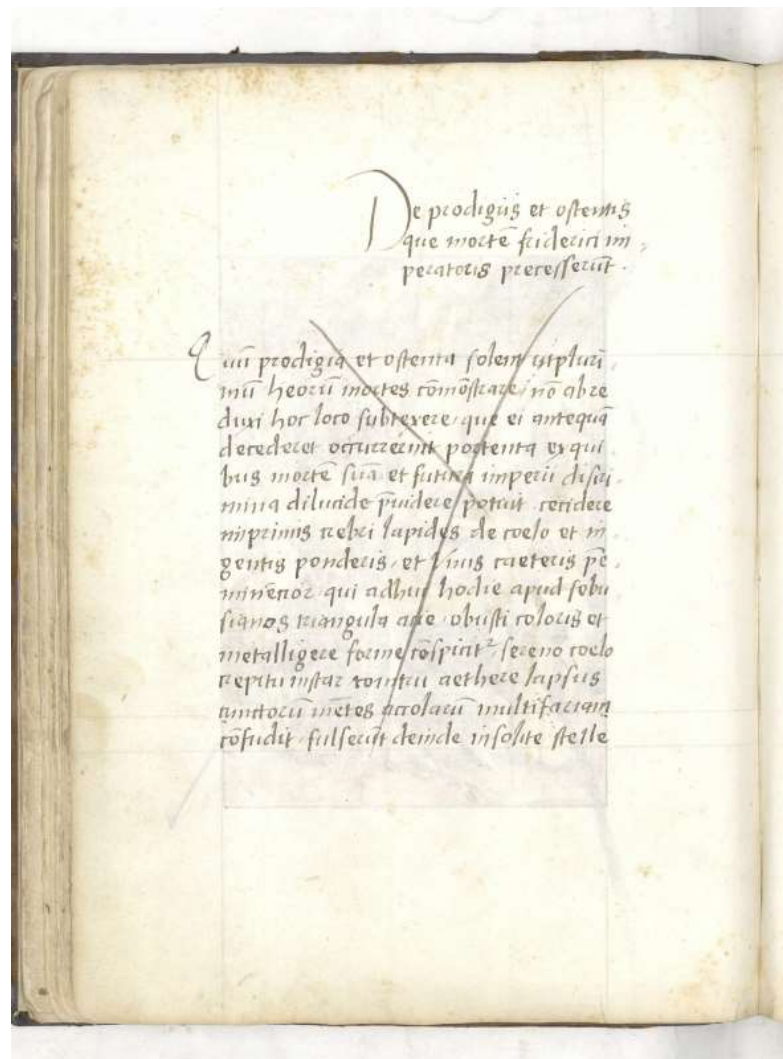 De prodigiis et ostentis
que mortē friderici im
peratoris precesserūt.
Quū prodigia et ostenta solent utpluri,
mū heorū mortes cōmōstrare, nō abre
duxi hoc loco subtexere, que ei antequā
decederet occurrerint portenta ex qui
bus mortē suā et futura imperii discri,
mina dilucide p̄uidere potuit. cecidere
inprimis crebri lapides de coelo et in
gentis ponderis, et vnus caeteris p̄e,
minencior, qui adhuc hodie apud febu
sianos triangula acie, obusti coloris et
metalligere forme cōspicit², sereno coelo
crepitu instar tonitru aethere lapsus
cunctorū mētes accolarū multifariam
cōfudit. fulserūt deinde insolite stelle